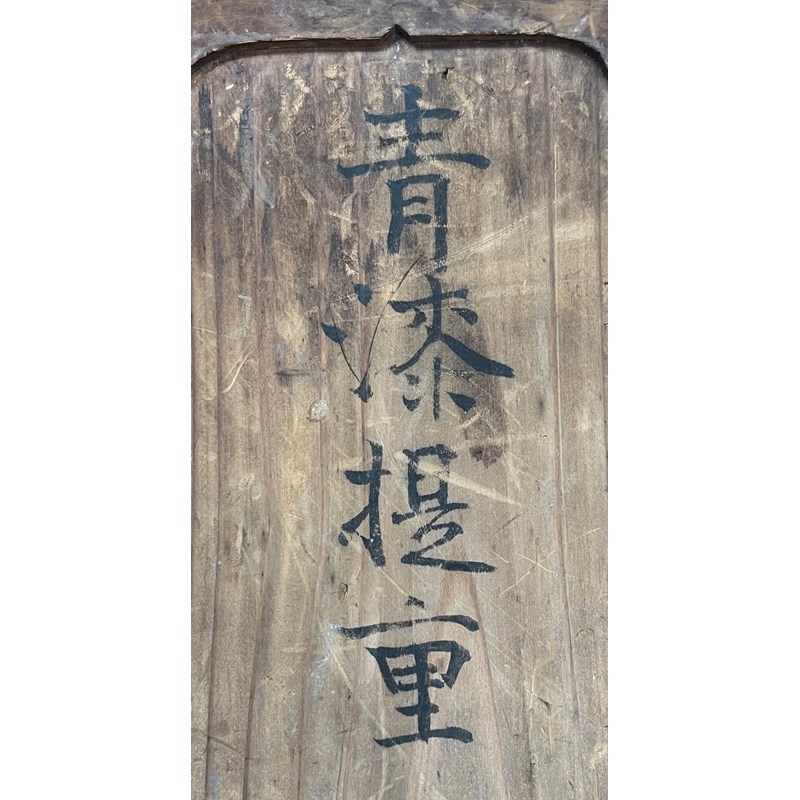 青漆提重